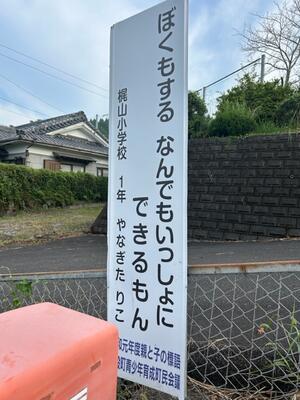 ぼくもする なんでもいっしょに
できるもん
梶山小学校 1年 やなぎた りこ
和元年度親と子の標語
町青少年育成町民会議